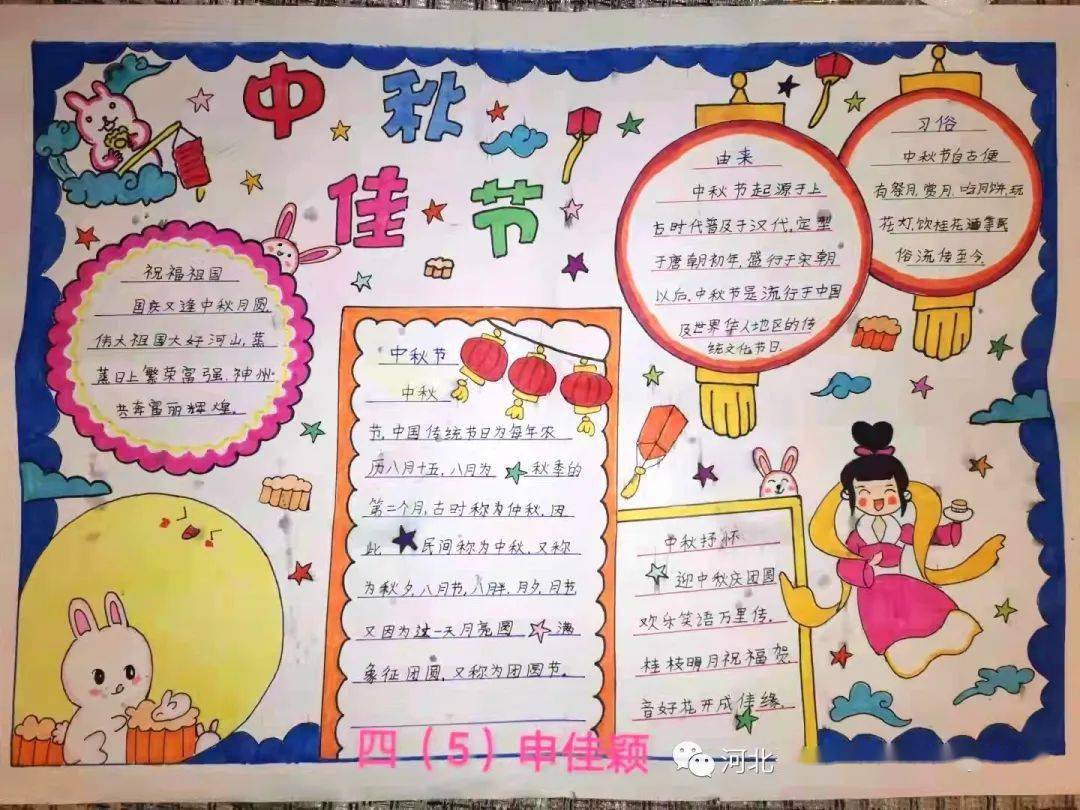 中秋
佳节
祝福祖国
国庆又逢中秋月圆,
伟大祖国大好河山,蒸
蒸日上繁荣富强,神州
共奔富丽辉煌。
中秋节
中秋
节,中国传统节日为每年农
历八月十五,八月为秋季的
第二个月,古时称为仲秋,因
此民间称为中秋,又称
为秋夕,八月节,八月半,月夕,月节
又因为这一天月亮圆满
象征团圆,又称为团圆节。
由来
中秋节起源于上
古时代普及于汉代,定型
于唐朝初年,盛行于宋朝
以后,中秋节是流行于中国
及世界华人地区的传
统文化节日.
习俗
中秋节自古便
有祭月,赏月,吃月饼,玩
花灯,饮桂花酒等民
俗流传至今.
中秋抒怀
迎中秋庆团圆
欢乐笑语万里传,
桂枝明月祝福贺
音好花开成佳缘.
四（5）申佳颖
河北